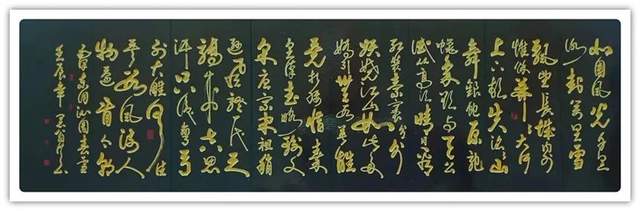 北国风光千里
冰封万里雪
飘望长城内外
惟余莽莽大河
上下顿失滔滔山
舞银蛇原驰
蜡象欲与天公
试比高须晴日看
红装素裹分外
妖娆江山如此多
娇引无数英雄
竞折腰惜秦
皇汉武略输文
采唐宗宋祖稍
逊风骚一代天
骄成吉思
汗只识弯弓
射大雕俱往
矣数风流人
物还看今朝
沁园春雪
壬辰年